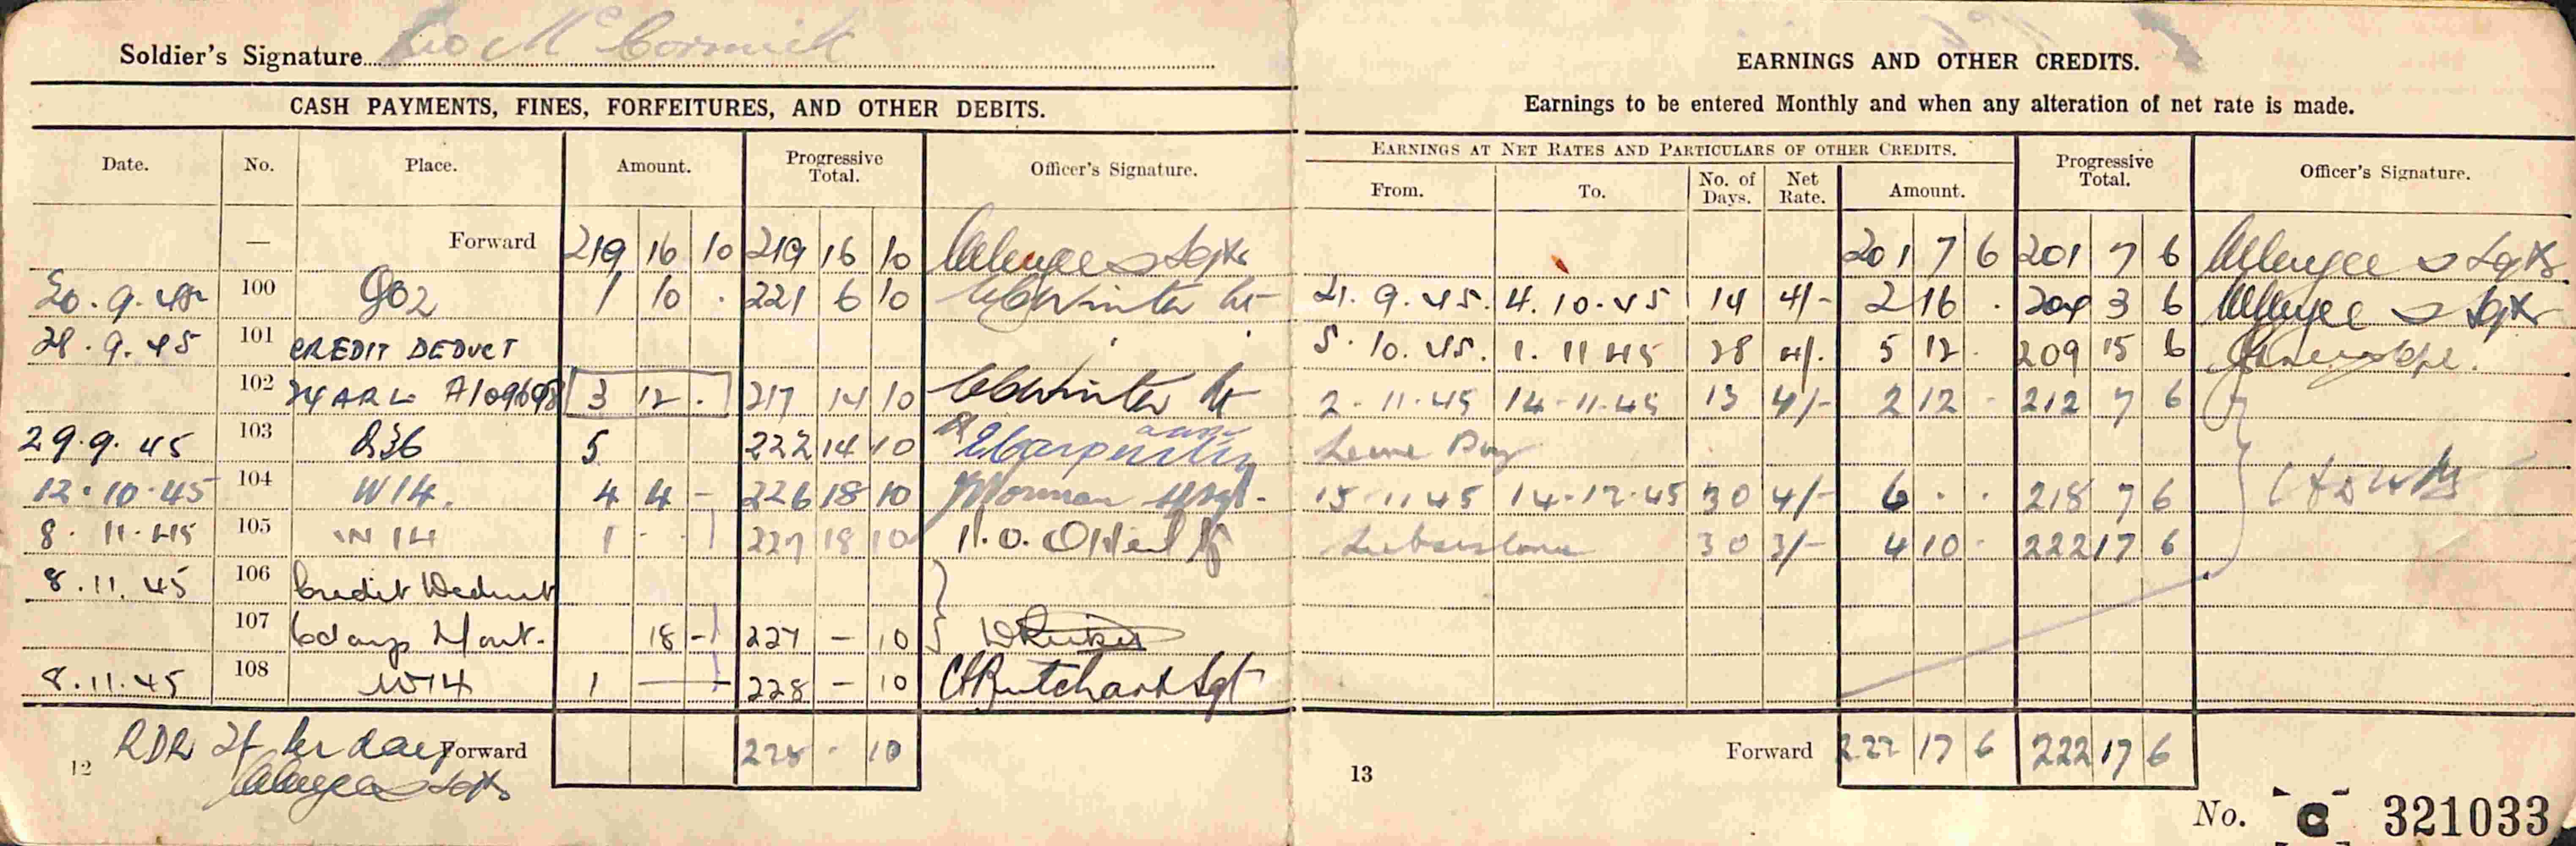 Soldier's Signature Leo McCormick
CASH PAYMENTS, FINES, FORFEITURES, AND OTHER DEBITS.
Date. No. Place. Amount. Progressive Total. Officer's Signature.
— Forward 219 16 10 219 16 10
20.9.45 100 1 10 . 221 6 10 Winter Lt
28.9.45 101 CREDIT DEDUCT
102 3 12 . 217 14 10 Winter Lt
29.9.45 103 5 222 14 10
12.10.45 104 W14. 4 4 - 226 18 10
8.11.45 105 W14 1 - - 227 18 10
8.11.45 106 Credit Deduct
107 6 days 18 - 227 — 10
8.11.45 108 W14 1 — 228 — 10 Butchart Sgt
RDR 2/- per day Forward 228 - 10
12
EARNINGS AND OTHER CREDITS.
Earnings to be entered Monthly and when any alteration of net rate is made.
EARNINGS AT NET RATES AND PARTICULARS OF OTHER CREDITS. Progressive Total. Officer's Signature.
From. To. No. of Days. Net Rate. Amount.
201 7 6 201 7 6
21.9.45. 4.10.45 14 4/- 2 16 . 204 3 6
5.10.45. 1.11.45 28 4/- 5 12 . 209 15 6
2-11-45 14-11-45 13 4/- 2 12 - 212 7 6
Leave Pay
15-11-45 14-12-45 30 4/- 6 . . 218 7 6
Subsistence 30 3/- 4 10 - 222 17 6
Forward 222 17 6 222 17 6
13
No. C 321033